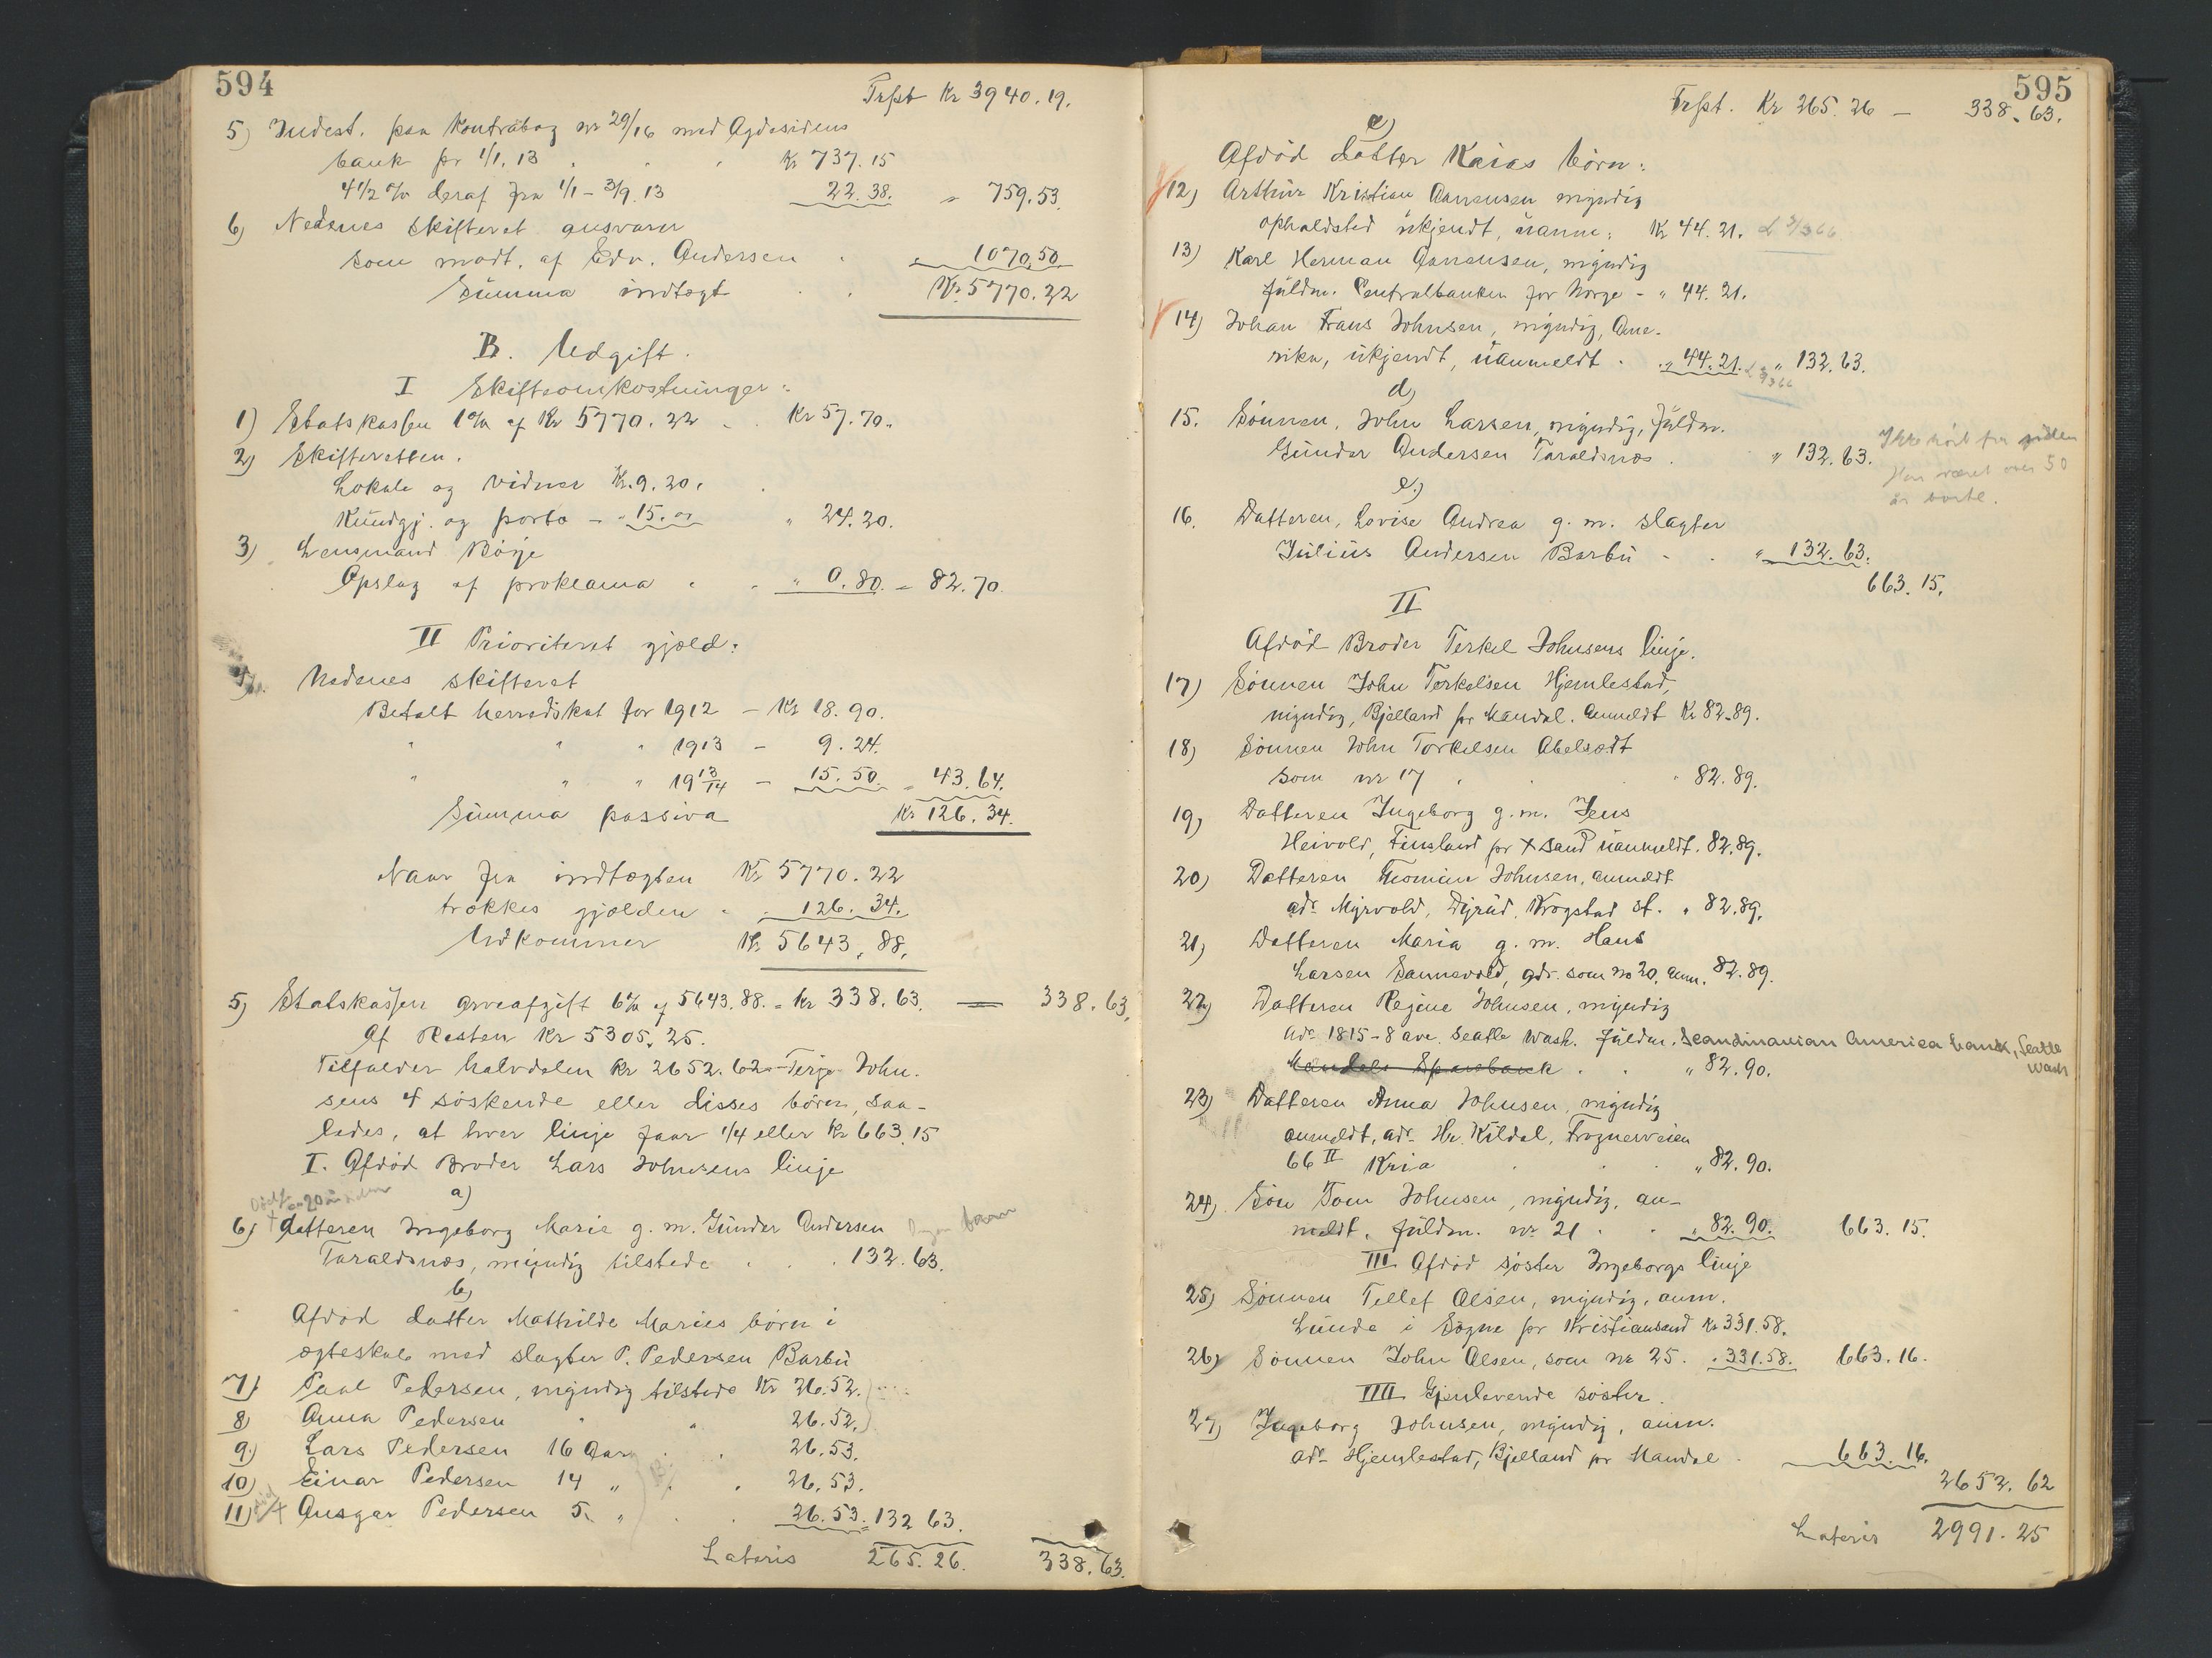 594
Trspt Kr 3940.19.
5) Indest. paa Kontrabog nr 29/16 med Agdesidens
bank pr 1/1. 13 . . . Kr 737.15
4 1/2 % deraf fra 1/1 - 3/9. 13 22.38. " 759.53.
6) Nedenes skifteret ansvarer
som modt. af Edv. Andersen . " 1070.50
Summa indtægt . . Kr. 5770.22
B. Udgift.
I Skifteomkostninger:
1) Statskassen 1% af Kr 5770.22 . . Kr 57.70.
2) Skifteretten.
Lokale og vidner Kr. 9.20.
Kundgj. og porto - " 15.00 " 24.20.
3) Lensmand Böye
Opslag af proklama . . " 0.80 = 82.70.
II Prioriteret gjæld:
4) Nedenes skifteret
Betalt herredskat for 1912 - Kr 18.90.
" " " 1913 - 9.24.
" " " 19 13/14 - 15.50. = 43.64.
Summa passiva Kr 126.34.
Naar fra indtægten Kr 5770.22
trækkes gjælden . . 126.34.
Udkommer Kr 5643.88.
5) Statskassen arveafgift 6% af 5643.88. = Kr 338.63. = 338.63.
Af Resten Kr 5305.25.
Tilfalder halvdelen Kr 2652.62 Terje John-
sens 4 söskende eller disses börn, saa-
ledes, at hver linje faar 1/4 eller Kr 663.15
I. Afdöd Broder Lars Johnsens linje
a)
Död for 20 år siden
6) † Datteren Ingeborg Marie g. m. Gunder Andersen Ingen barn
Taraldsnæs, myndig tilstede . . . 132.63.
b)
Afdöd datter Mathilde Maries börn i
ægteskab med slagter P. Pedersen Barbu
7) Paul Pedersen, myndig tilstede Kr 26.52.
8) Anna Pedersen " " 26.52.
9) Lars Pedersen 16 Aar . . 26.53.
10) Einar Pedersen 14 " . . 26.53.
11) død † Ansgar Pedersen 5. " . . 26.53. = 132 63.
Lateris 265.26. 338.63.
595
Trspt. Kr 265.26 - 338.63.
c)
Afdöd datter Kaias börn:
12) Arthur Kristian Aanensen myndig
opholdsted ukjendt, uanm: Kr 44.21.
13) Karl Herman Aanensen, myndig
fuldm. Centralbanken for Norge - " 44.21.
14) Johan Frans Johnsen, myndig, Ame-
rika, ukjendt, uanmeldt . . " 44.21. " 132.63.
d)
15. Sönnen, John Larsen, myndig, fuldm.
Gunder Andersen Taraldsnæs . " 132.63.
Ikke hört fra siden
Har været over 50
år borte.
e.)
16. Datteren, Lovise Andrea g. m. slagter
Julius Andersen Barbu - . " 132.63.
663.15.
II
Afdöd Broder Terkel Johnsens linje.
17) Sönnen John Terkelsen Hjemlestad,
myndig, Bjelland pr Mandal. Anmeldt Kr 82.89.
18) Sönnen John Torkelsen Abelsedt
som nr 17 . . " 82.89.
19) Datteren Ingeborg g. m. Jens
Heivold, Finsland pr X sand uanmeldt. 82.89.
20) Datteren Thomine Johnsen, anmeldt
adr. Myrvold, Dyrud, Krogstad st. " 82.89.
21) Datteren Maria g. m. Hans
Larsen Sannevold, adr. som no 20. anm. 82.89.
22) Datteren Regine Johnsen, myndig
adr 1815 - 8 ave. Seatle Wash. fuldm. Scandinavian America bank, Seatle
Wash
Mandals Sparebank . . " 82.90.
23) Datteren Anna Johnsen, myndig
anmeldt, adr. Hr. Kildal, Frognerveien
66 II Kria . . . " 82.90.
24) Sön Tom Johnsen, myndig, an-
meldt. fuldm. nr 21 . . " 82.90. 663.15.
III Afdöd söster Ingeborgs linje
25) Sönnen Tellef Olsen, myndig, anm.
Lunde i Sögne pr Kristiansand Kr 331.58.
26) Sönnen John Olsen, som nr 25. " 331.58. 663.16.
IIII Gjenlevende söster.
27) Ingeborg Johnsen, myndig, anm.
adr Hjemlestad, Bjelland pr Mandal . 663.16.
2652.62
Lateris 2991.25